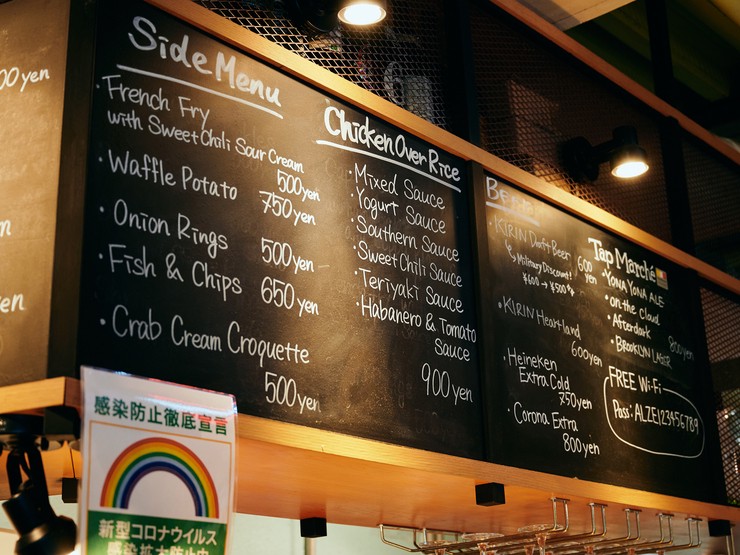 00 yen
en
Side Menu
・French Fry
with Sweet Chili Sour Cream
500yen
・Waffle Potato
750yen
・Onion Rings
500yen
・Fish & Chips
650yen
・Crab Cream Croquette
500yen
Chicken Over Rice
・Mixed Sauce
・Yogurt Sauce
・Southern Sauce
・Sweet Chili Sauce
・Teriyaki Sauce
・Habanero & Tomato
Sauce
900yen
・KIRIN Draft Beer
600
yen
Military Discount!
¥600→¥500
・KIRIN Heartland
600yen
・Heineken
Extra Cold
750yen
・Corona Extra
800yen
Tap Marché
・YONA YONA ALE
・on the cloud
・Afterdark
・BROOKLYN LAGER
800yen
FREE Wi-Fi
Pass: ALZE123456789
感染防止徹底宣言
新型コロナウイルス
感染拡大防止中